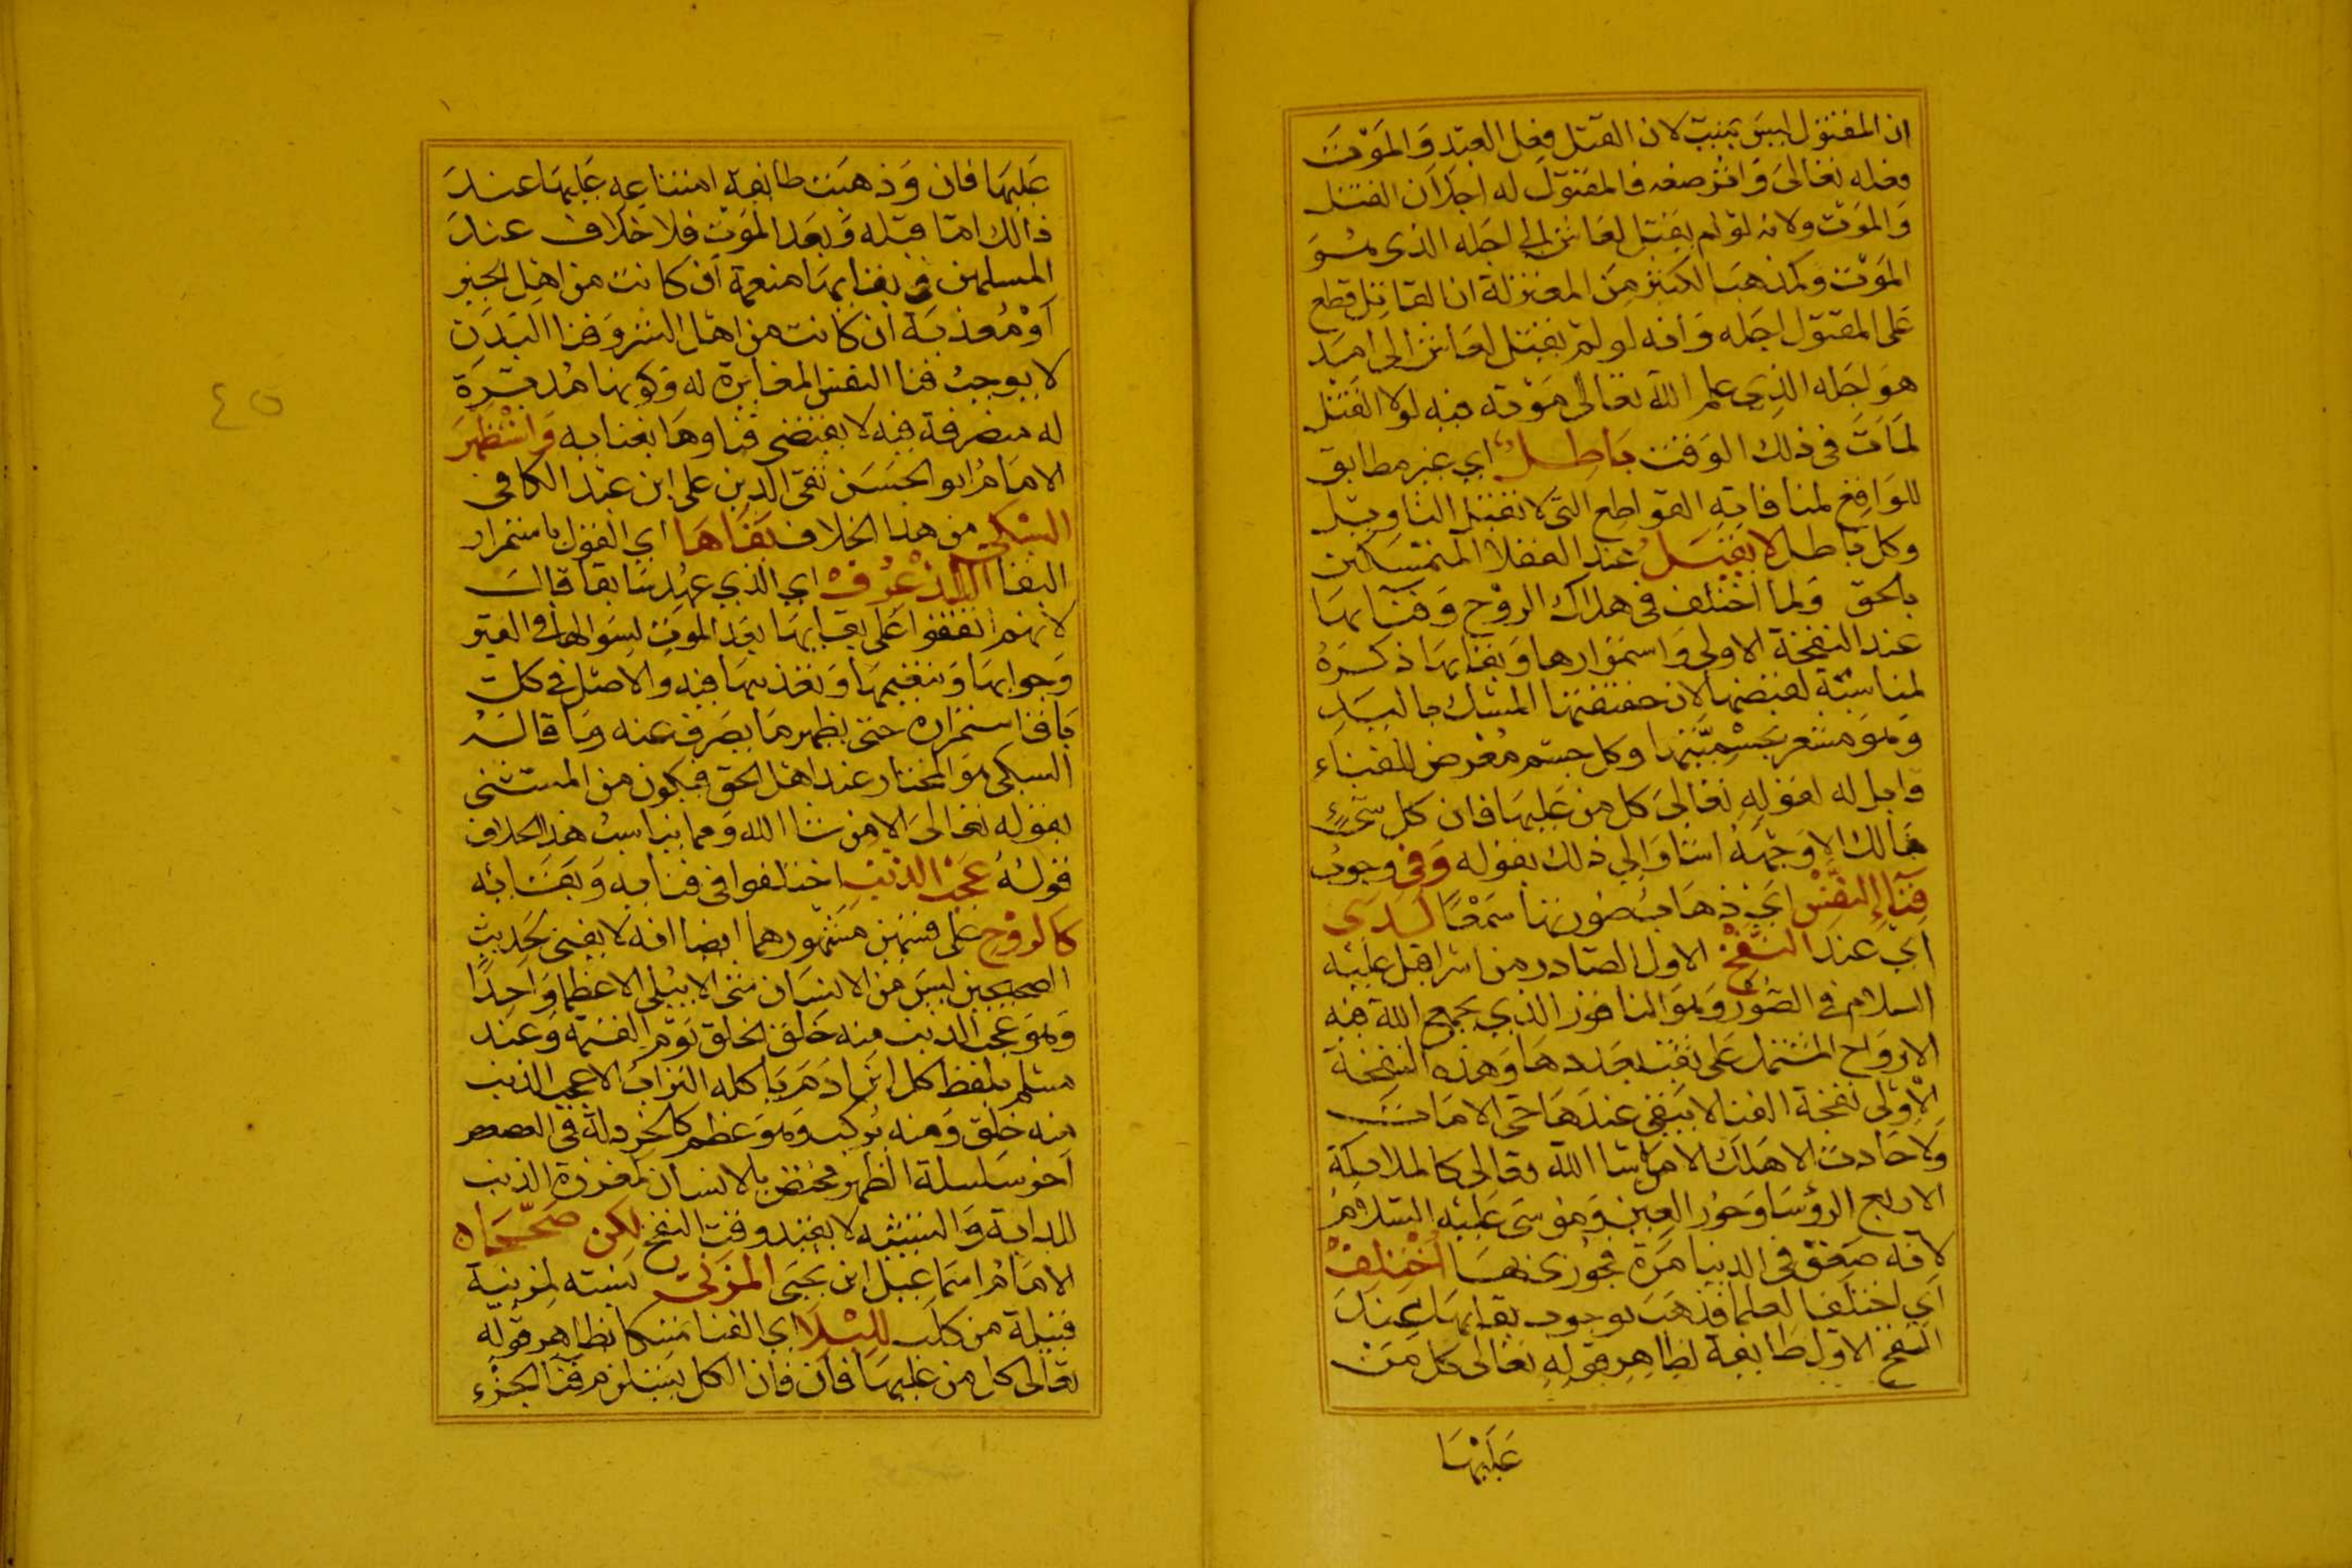 ان المقتول ليس بميت لان القتل فعل العبد وَالموَت
فعله تعالى وَاثر صفته فالمقتول له اجلان القتل
وَالموَت ولانه لوَ لم يقتل لعاش الى اجله الذي هوَ
الموَت وكمذهب الكثير من المعتزلة ان القاتل قطع
عَلى المقتول اجله وَانه لو لم يقتل لعَاش الى امد
هوَ اجله الذي علم الله تعالى موَته فيه لولا القتل
لماتَ فى ذلك الوَقت بَاطلٌ اي غير مطابق
للوَاقع لمنافاته القوَاطع التي لا تقبل التاويل
وكل باطل لا يقبل عند العقلا المتمسكين
بالحق وَلما اختلف في هلاك الروح وَفنايها
عند النفخة الاولى وَاستمرارها وَبقايها ذكره
لمناسبة لقبضها لان حقيقتها المسك باليد
وَهوَ مشعر بجسْميتها وكل جسم معرض للفناء
وقابل له لقوله تعالى كل من عَليها فان كل شيءٍ
هَالك الا وَجْهَهُ اشاوَ الي ذلك بقوله وَفى وجوب
فَناءِ النفْسْ اي ذهاب صورتها سَمعًا لَدَى
اي عند النفْخِ الاول الصادر من اسرافيل عليه
السلام في الصور وَهوَ الناقور الذي يجمع الله فيه
الاروَاح المشتمل عَلى ثقب بعددها وَهذه النفخة
الاوْلى نفخة الفنا لا يبقى عندهَا حي الا مَات
وَلا حادث الا هلك الا من شا الله تعالى كالملايكة
الاربع الرؤسا وَحور العين وَموسَى عَليه السلام
لانه صَعق في الدنيا مرة فجوزي بها اُختلفْ
اي اختلف العلما فذهَب بوجود بقايها عند
النفخ الاول طايفة لظاهر قوله تعالى كل من
عَلَيْهَا
عَليها فان وَذهبت طايفة امتناعه عَليها عند
ذالك امّا قبله وَبعد الموَت فلا خلاف عند
المسلمين في بقايها منعمة ان كانت من اهل الخير
اَوْ مُعذبة ان كانت من اهل الشر وَفنا البدَن
لا يوجب فنا النفس المغايرة له وَكونها مُدبرة
له متصرفة فيه لا يقتضى فناوها بفنايه وَاسْتظهرَ
الامَامُ ابو الحسَن تقي الدين على ابن عبد الكافى
السبكى من هذا الخلاف بقَاهَا اي القول باستمرار
البقا اللّذْ عُرفْ اي الذي عهد سابقا قال
لانهم اتفقوا عَلى بقايها بعد الموت لسوالها في القبر
وَجوابها وَتنعيمها وَتعذيبها فيه وَالاصل في كل
باق استمراره حتى يظهر مَا يصَرف عنه وَما قاله
السبكى هوَ المختار عند اهل الحق فيكون من المستثنى
بقوله تعالى الا من شا الله وَمما يناسب هذا الخلاف
قولهُ عَجْبَ الذنَبِ اختلفوا فى فنايه وَبقائه
كالروْحِ عَلى قسمين مشهورهما ايضا انه لا يفنى لحديث
الصحيحين ليسَ من الانسَان شي الا يبلى الا عظما وَاحدًا
وَهوَ عجب الذنب منه خلق الخلق يوَم القيمة وَعند
مسلم بلفظ كل ابن ادَم يَاكله التراب الا عجب الذنب
منه خلق وَمنه يركب وَهوَ عظم كالخردلة في العصعص
اخر سَلسلة الظهر مختص بالانسان كمغرزة الذنب
للدابة وَالتشبيه لا يقيد وقت النفخ لكن صَحّحَاه
الامَامُ اسمَاعيل ابن يحيَى المُزنى نسبته لمزينة
قبيلة من كلب للبِلا اي الفنا متمسكا بظاهر قوله
تعالى كل من عليها فان فان الكل يستلزم فنا الجزء
٤٥